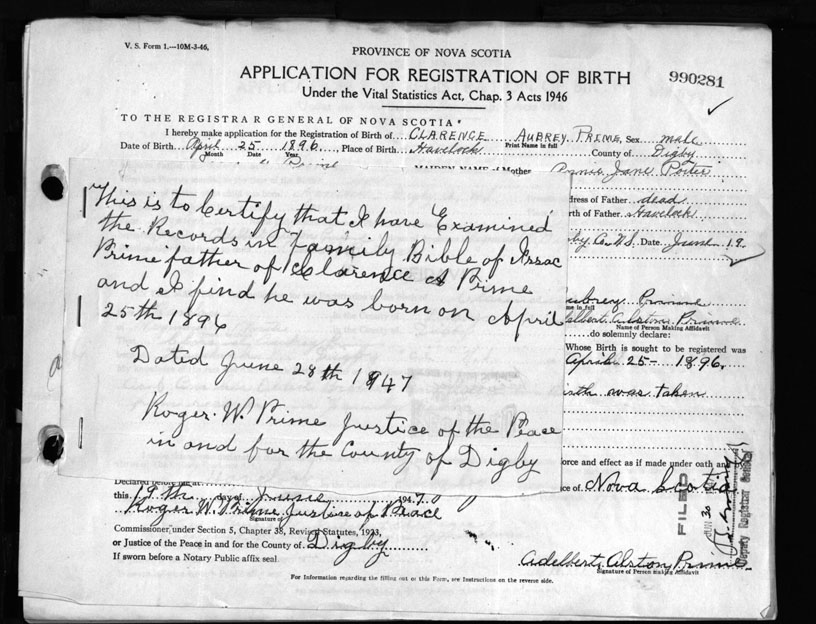 V. S. Form 1.—10M-3-46.
PROVINCE OF NOVA SCOTIA
APPLICATION FOR REGISTRATION OF BIRTH
990281
Under the Vital Statistics Act, Chap. 3 Acts 1946
TO THE REGISTRAR GENERAL OF NOVA SCOTIA
I hereby make application for the Registration of Birth of CLARENCE AUBREY PRIME, Sex male
Print Name in full
Date of Birth April 25 1896, Place of Birth Havelock County of Digby
Month Date Year
Prime MAIDEN NAME of Mother Jane Porter
dress of Father dead
rth of Father Havelock
Co. N.S. Date June 19
This is to Certify that I have Examined
the Records in Family Bible of Issac
Prime father of Clarence A Prime
and I find he was born on April
25th 1896
Dated June 28th 1947
Roger. W. Prime Justice of the Peace
in and for the County of Digby
ubrey Prime
me in full
delbert Alston Prime
Name of Person Making Affidavit
do solemnly declare:
Whose Birth is sought to be registered was
April 25- 1896.
birth was taken
orce and effect as if made under oath and by
ce of Nova Scotia
Declared before me at
this 19th day of June 1947
Roger W. Prime Justice of Peace
Signature of
Commissioner under Section 5, Chapter 38, Revised Statutes, 1923,
or Justice of the Peace in and for the County of Digby
If sworn before a Notary Public affix seal
FILED
JUN 30
Deputy Registrar General
Adelbert Alston Prime
Signature of Person Making Affidavit
For Information regarding the filling out of this Form, see Instructions on the reverse side.